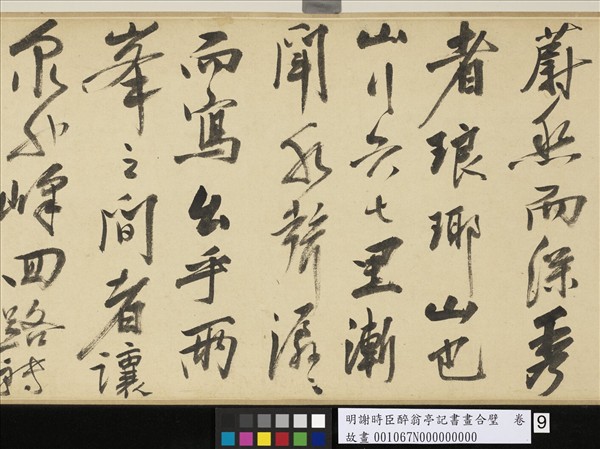 蔚然而深秀
者琅瑘山也
山行六七里漸
聞水聲潺〻
而寫出乎兩
峯之間者讓
泉也峰回路轉
明謝時臣醉翁亭記書畫合璧 卷 9
故畫 001067N000000000